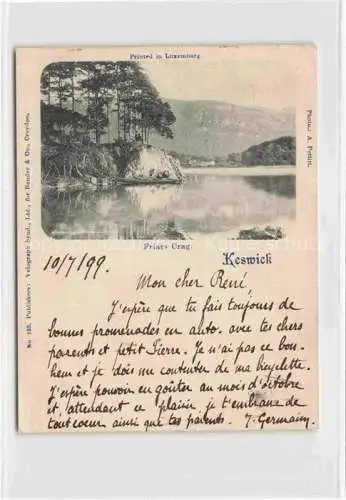 Printed in Luxemburg.
No 135. Publishers: Velograph Synd., Ltd., for Bender & Co., Croydon.
Photo: A. Pettitt.
Friars Crag.
Keswick
10/7/99.
Mon cher René,
J'espère que tu fais toujours de
bonnes promenades en auto. avec tes chers
parents et petit Pierre. Je n'ai pas ce bon-
heur et je dois me contenter de ma bicyclette.
J'espère pouvoir en goûter au mois d'octobre
et, attendant ce plaisir, je t'embrasse de
tout coeur ainsi que tes parents. J. Germain.